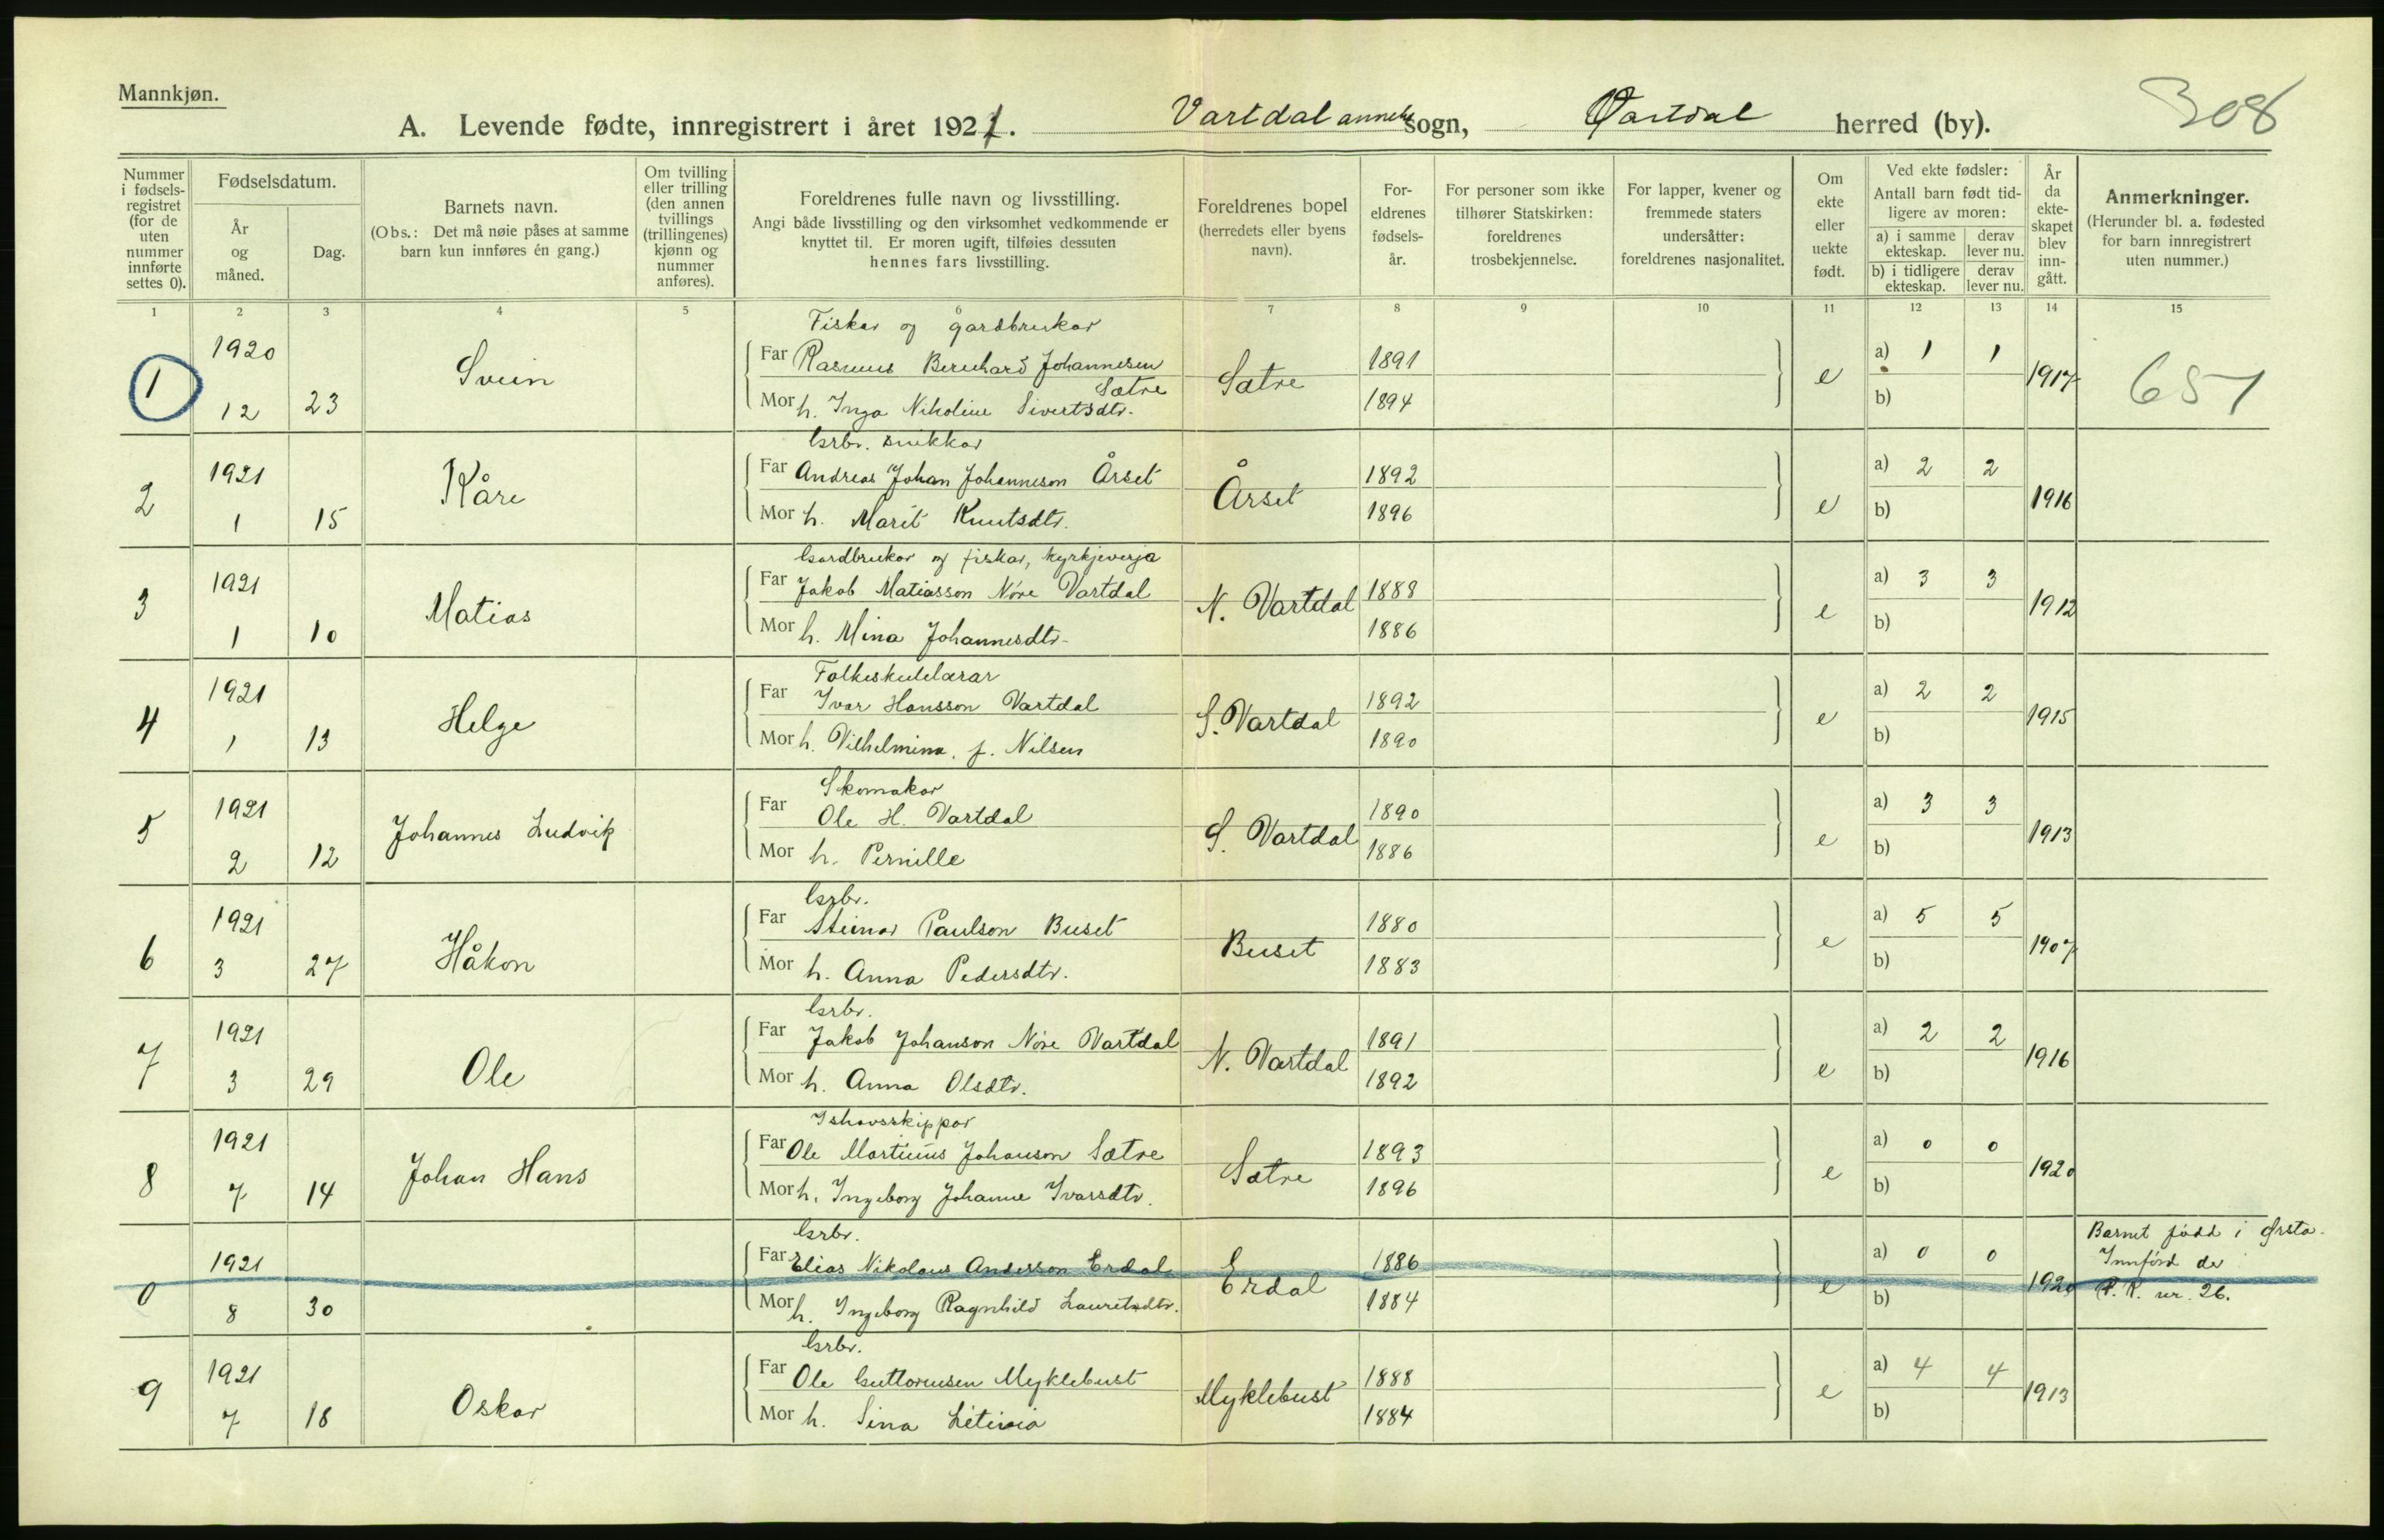 Mannkjøn.
308
A. Levende fødte, innregistrert i året 1921. Vartdal anneks sogn, Vartdal herred (by).
Nummer i fødselsregistret (for de uten nummer innførte settes 0).
Fødselsdatum.
År og måned.
Dag.
Barnets navn.
(Obs.: Det må nøie påses at samme barn kun innføres én gang.)
Om tvilling eller trilling (den annen tvillings (trillingenes) kjønn og nummer anføres).
Foreldrenes fulle navn og livsstilling.
Angi både livsstilling og den virksomhet vedkommende er knyttet til. Er moren ugift, tilføies dessuten hennes fars livsstilling.
Foreldrenes bopel (herredets eller byens navn).
Foreldrenes fødselsår.
For personer som ikke tilhører Statskirken: foreldrenes trosbekjennelse.
For lapper, kvener og fremmede staters undersåtter: foreldrenes nasjonalitet.
Om ekte eller uekte født.
Ved ekte fødsler:
Antall barn født tidligere av moren:
a) i samme ekteskap. derav lever nu.
b) i tidligere ekteskap. derav lever nu.
År da ekteskapet blev inngått.
Anmerkninger.
(Herunder bl. a. fødested for barn innregistrert uten nummer.)
1 2 3 4 5 6 7 8 9 10 11 12 13 14 15
Fiskar og gardbrukar
1 1920 12 23 Svein
Far Rasmus Bernhard Johannesen Sætre
Mor h. Inga Nikoline Sivertsdtr.
Sætre 1891 1894 e a) 1 1 b) 1917 651
Grbr. snikkar
2 1921 1 15 Kåre
Far Andreas Johan Johanneson Årset
Mor h. Marit Knutsdtr.
Årset 1892 1896 e a) 2 2 b) 1916
Gardbrukar og fiskar, kyrkjeverja
3 1921 1 10 Matias
Far Jakob Matiasson Nøre Vartdal
Mor h. Mina Johannesdtr.
N. Vartdal 1888 1886 e a) 3 3 b) 1912
Folkeskulelærar
4 1921 1 13 Helge
Far Ivar Hansson Vartdal
Mor h. Vilhelmina, f. Nilsen
S. Vartdal 1892 1890 e a) 2 2 b) 1915
Skomakar
5 1921 2 12 Johannes Ludvik
Far Ole H. Vartdal
Mor h. Pernille
S. Vartdal 1890 1886 e a) 3 3 b) 1913
Grbr.
6 1921 3 27 Håkon
Far Steinar Paulson Buset
Mor h. Anna Pedersdtr.
Buset 1880 1883 e a) 5 5 b) 1907
Grbr.
7 1921 3 29 Ole
Far Jakob Johanson Nøre Vartdal
Mor h. Anna Olsdtr.
N. Vartdal 1891 1892 e a) 2 2 b) 1916
Ishavsskippar
8 1921 7 14 Johan Hans
Far Ole Martinus Johanson Sætre
Mor h. Ingeborg Johanne Ivarsdtr.
Sætre 1893 1896 e a) 0 0 b) 1920
Grbr.
0 1921 8 30
Far Elias Nikolaus Andersson Erdal
Mor h. Ingeborg Ragnhild Lauritsdtr.
Erdal 1886 1884 e a) 0 0 b) 1920
Barnet fødd i Ørsta.
Innførd der
P. R. nr. 26.
Grbr.
9 1921 7 18 Oskar
Far Ole Guttormsen Myklebust
Mor h. Sina Letivia
Myklebust 1888 1884 e a) 4 4 b) 1913